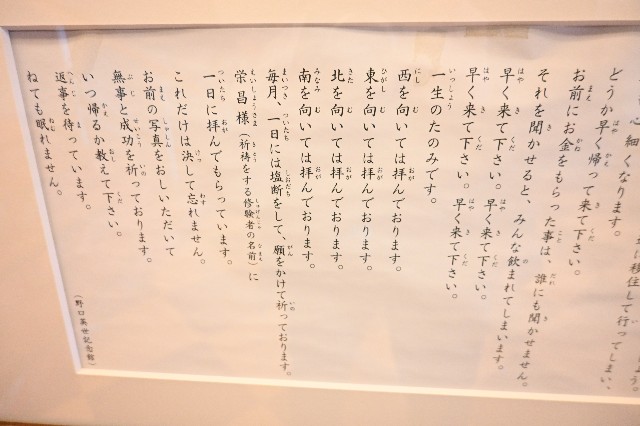 に移住して行ってしまい、
心細くなります。
どうか早く帰って来て下さい。
お前にお金をもらった事は、誰にも聞かせません。
それを聞かせると、みんな飲まれてしまいます。
早く来て下さい。早く来て下さい。
早く来て下さい。早く来て下さい。
一生のたのみです。
西を向いては拝んでおります。
東を向いては拝んでおります。
北を向いては拝んでおります。
南を向いては拝んでおります。
毎月、一日には塩断をして、願をかけて祈っております。
栄昌様（祈祷をする修験者の名前）に
一日に拝んでもらっています。
これだけは決して忘れません。
お前の写真をおしいただいて
無事と成功を祈っております。
いつ帰るか教えて下さい。
返事を待っています。
ねても眠れません。
（野口英世記念館）